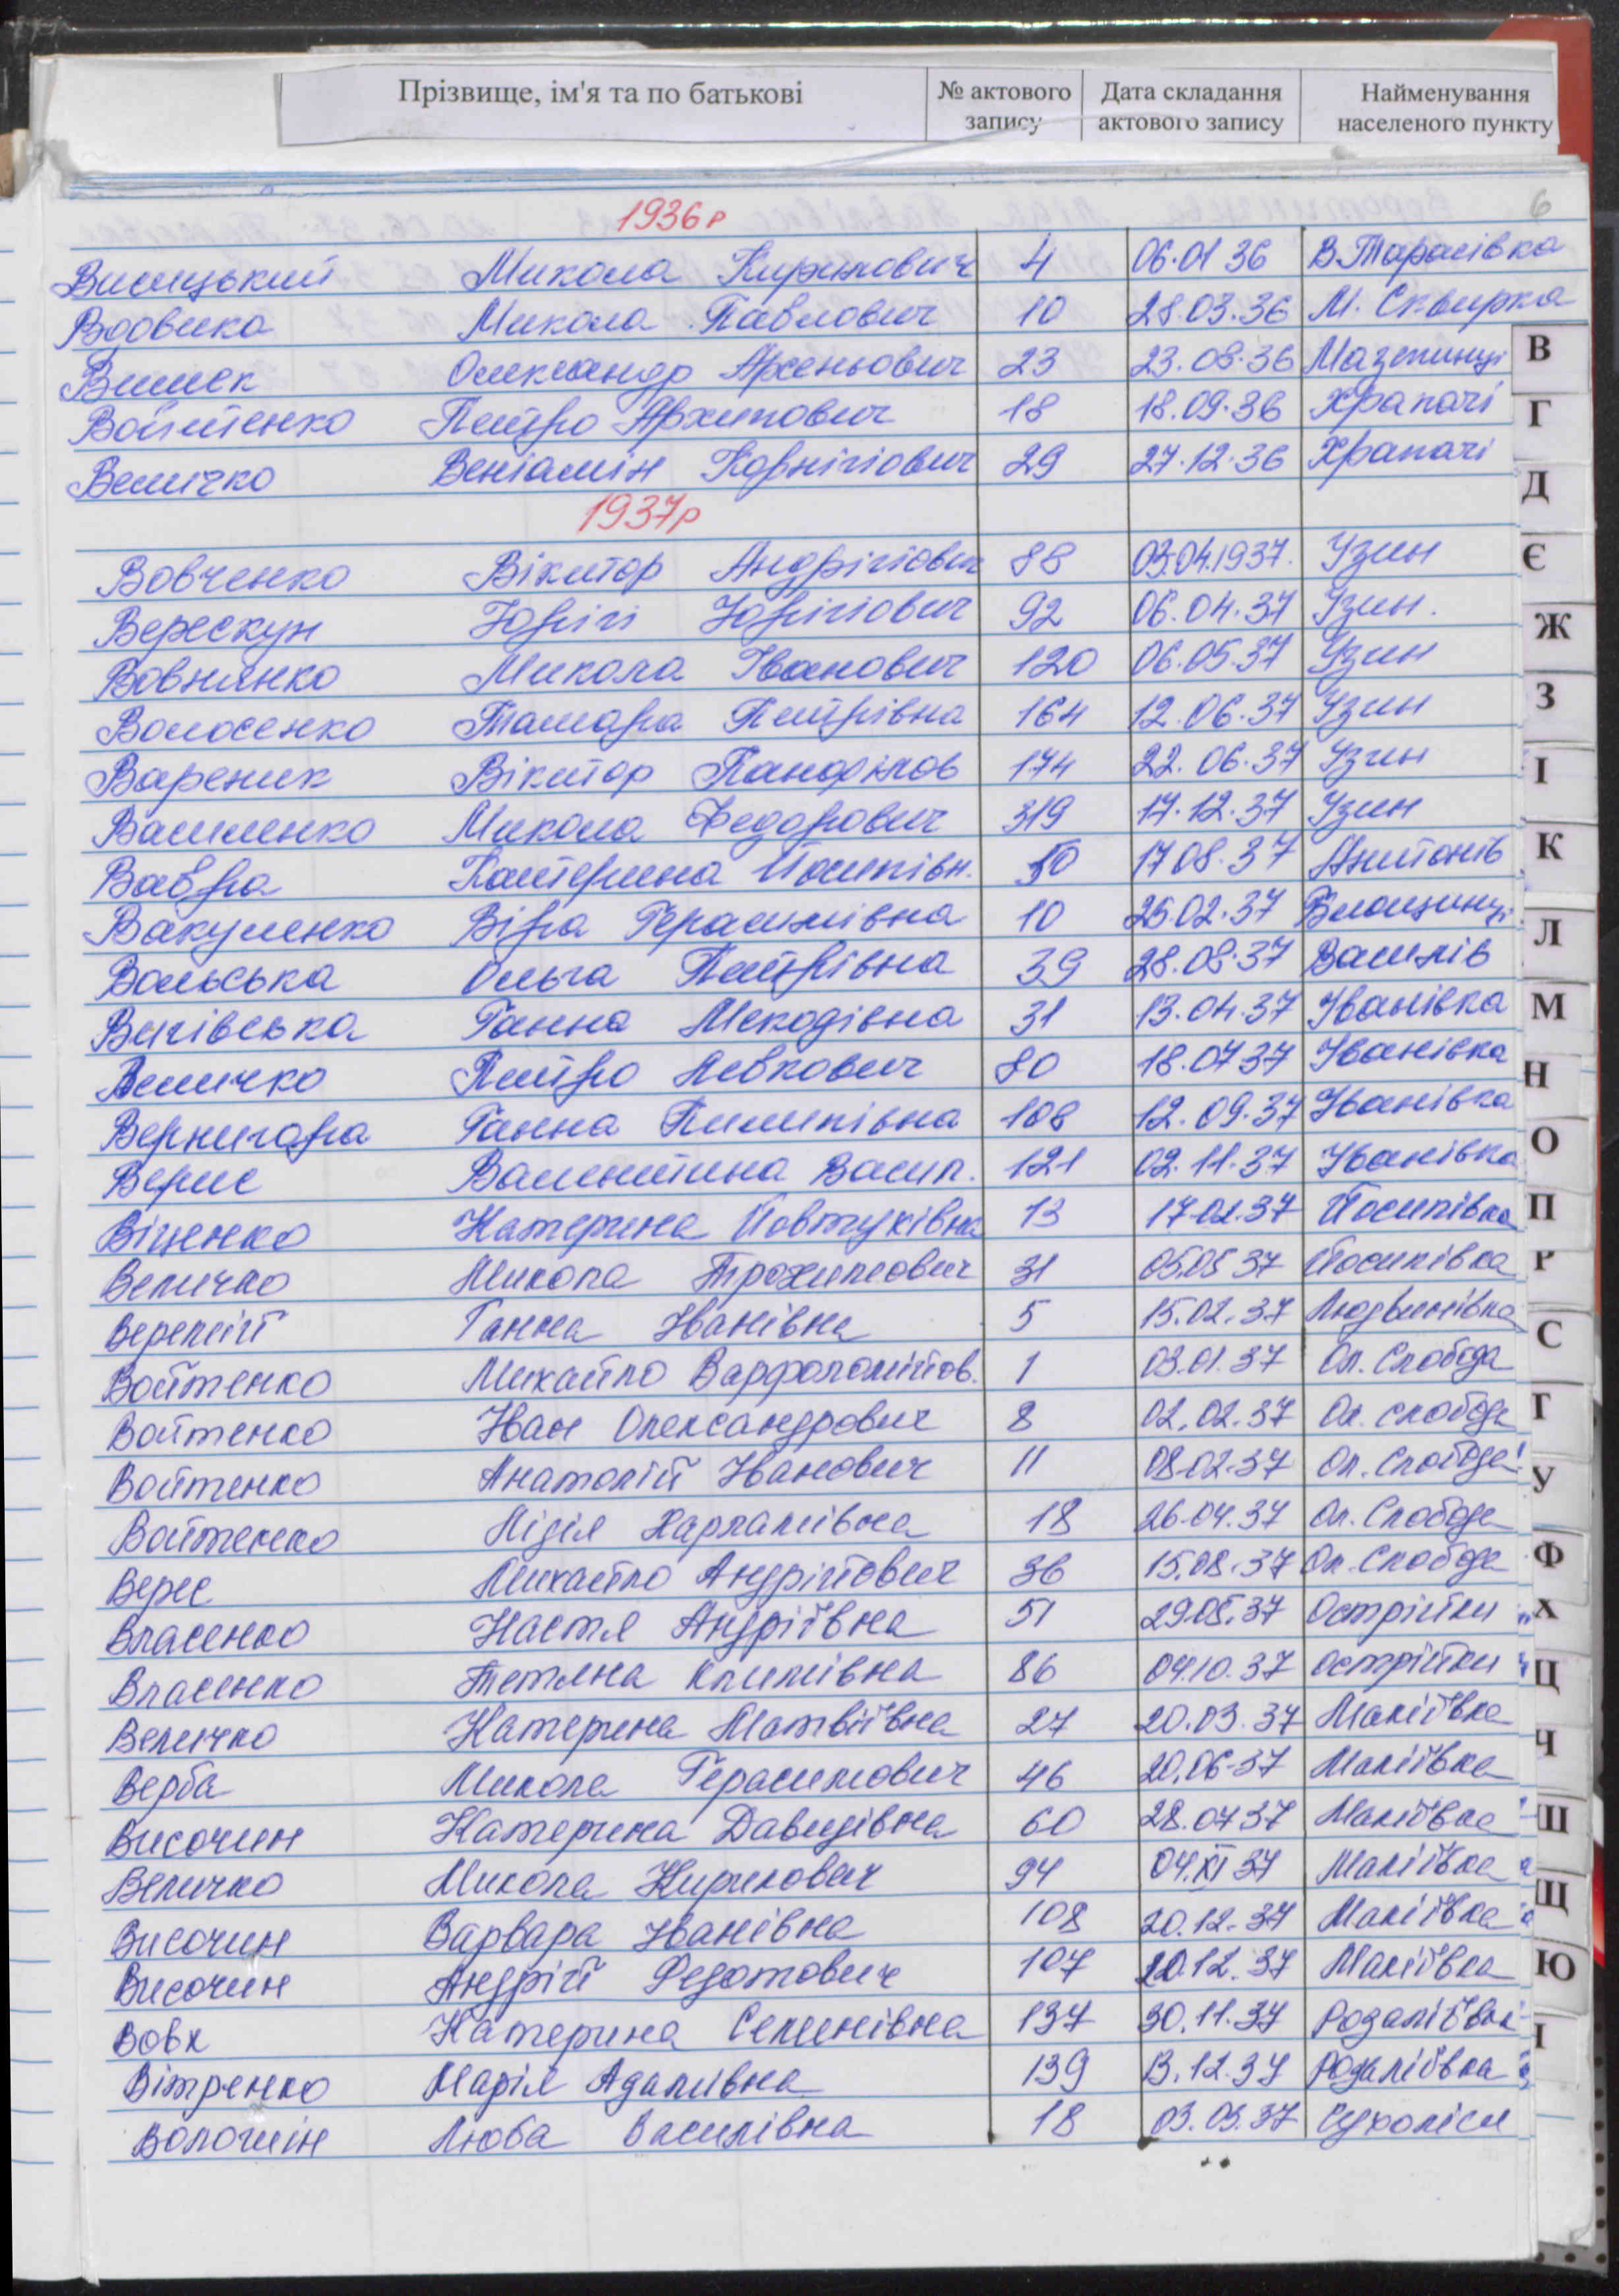 Прізвище, ім'я та по батькові № актового запису Дата складання актового запису Найменування населеного пункту
6
1936р
Висицький Микола Кирилович 4 06.01 36 В.Тарасівка
Вдовика Микола Павлович 10 28.03.36 М. Сквирка
Вишек Олександр Арсеньович 23 23.08.36 Мазепинці
Войтенко Петро Архипович 18 18.09.36 Храпачі
Величко Веніамін Корнійович 29 27.12.36 Храпачі
1937р
Вовченко Віктор Андрійович 88 03.04.1937. Узин
Верескун Юрій Юрійович 92 06.04.37 Узин.
Вовнянко Микола Іванович 120 06.05.37 Узин
Волосенко Тамара Петрівна 164 12.06.37 Узин
Вареник Віктор Панфілов 174 22.06.37 Узин
Василенко Микола Федорович 319 17.12.37 Узин
Вавра Катерина Йосипівн. 50 17 08.37 Антонів
Вакуленко Віра Герасимівна 10 25.02.37 Блощинці
Вольська Ольга Петрівна 39 28.08.37 Василів
Вигівська Ганна Мекодівна 31 13.04.37 Іванівка
Величко Петро Левкович 80 18.07 37 Іванівка
Вернигора Ганна Пилипівна 108 12.09.37 Іванівка
Верис Валентина Васил. 121 02.11.37 Іванівка
Віценко Катерина Йовтухівна 13 17.02.37 Йосипівка
Величко Микола Трохимович 31 05.05 37 Йосипівка
Верелій Ганна Іванівна 5 15.02.37 Людвинівка
Войтенко Михайло Варфоломійов. 1 03.01.37 Ол. Слобода
Войтенко Іван Олександрович 8 02.02.37 Ол. слобода
Войтенко Анатолій Іванович 11 08.02.37 Ол. Слобода
Войтенко Лідія Харламівна 18 26.04.37 Ол. Слобода
Верес Михайло Андрійович 36 15.08.37 Ол. Слобода
Власенко Настя Андріївна 51 29.05.37 Острійки
Власенко Тетяна Климівна 86 04.10.37 Острійки
Величко Катерина Матвіївна 27 20.03.37 Макіївка
Верба Микола Герасимович 46 20.06.37 Макіївка
Височин Катерина Давидівна 60 28.07 37 Макіївка
Величко Микола Кирилович 94 04.XI 37 Макіївка
Височин Варвара Іванівна 108 20.12.37 Макіївка
Височин Андрій Федотович 107 20.12.37 Макіївка
Вовк Катерина Семенівна 137 30.11.37 Розаліївка
Вітренко Марія Адамівна 139 13.12.37 Розаліївка
Волошін Люба Василівна 18 03.03.37 Сухоліси
В
Г
Д
Є
Ж
З
І
К
Л
М
Н
О
П
Р
С
Т
У
Ф
Х
Ц
Ч
Ш
Щ
Ю